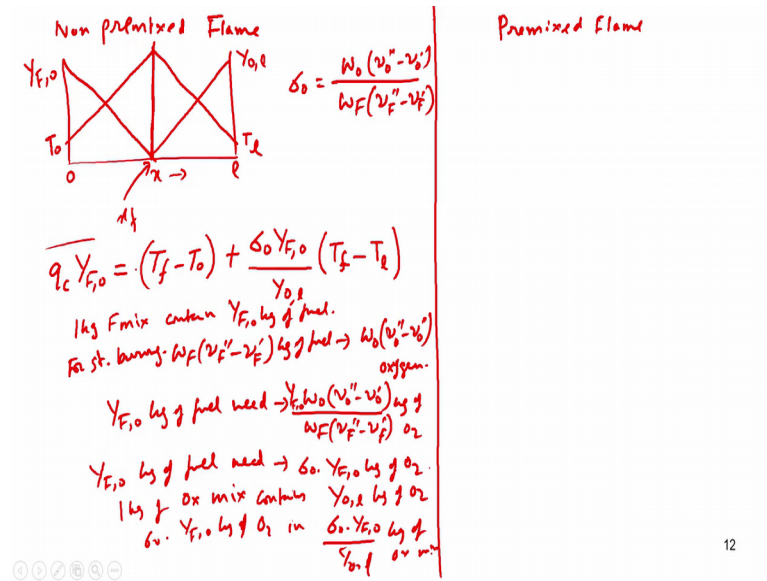 Non premixed Flame
Y_F,0
Y_0,l
T_0
T_l
0
x →
l
x_f
σ_0 = W_0(ν_0''-ν_0') / W_F(ν_F''-ν_F')
q_c Y_F,0 = (T_f-T_0) + σ_0 Y_F,0 / Y_0,l (T_f-T_l)
1 kg F mix contain Y_F,0 kg of fuel.
For st. burning. W_F(ν_F''-ν_F') kg of fuel → W_0(ν_0''-ν_0')
oxygen.
Y_F,0 kg of fuel need → Y_F,0 W_0(ν_0''-ν_0') / W_F(ν_F''-ν_F') kg of O2
Y_F,0 kg of fuel need → σ_0. Y_F,0 kg of O2.
1 kg of ox mix contains Y_0,l kg of O2
σ_0. Y_F,0 kg of O2 in σ_0. Y_F,0 / Y_0,l kg of ox mix
Premixed Flame
12